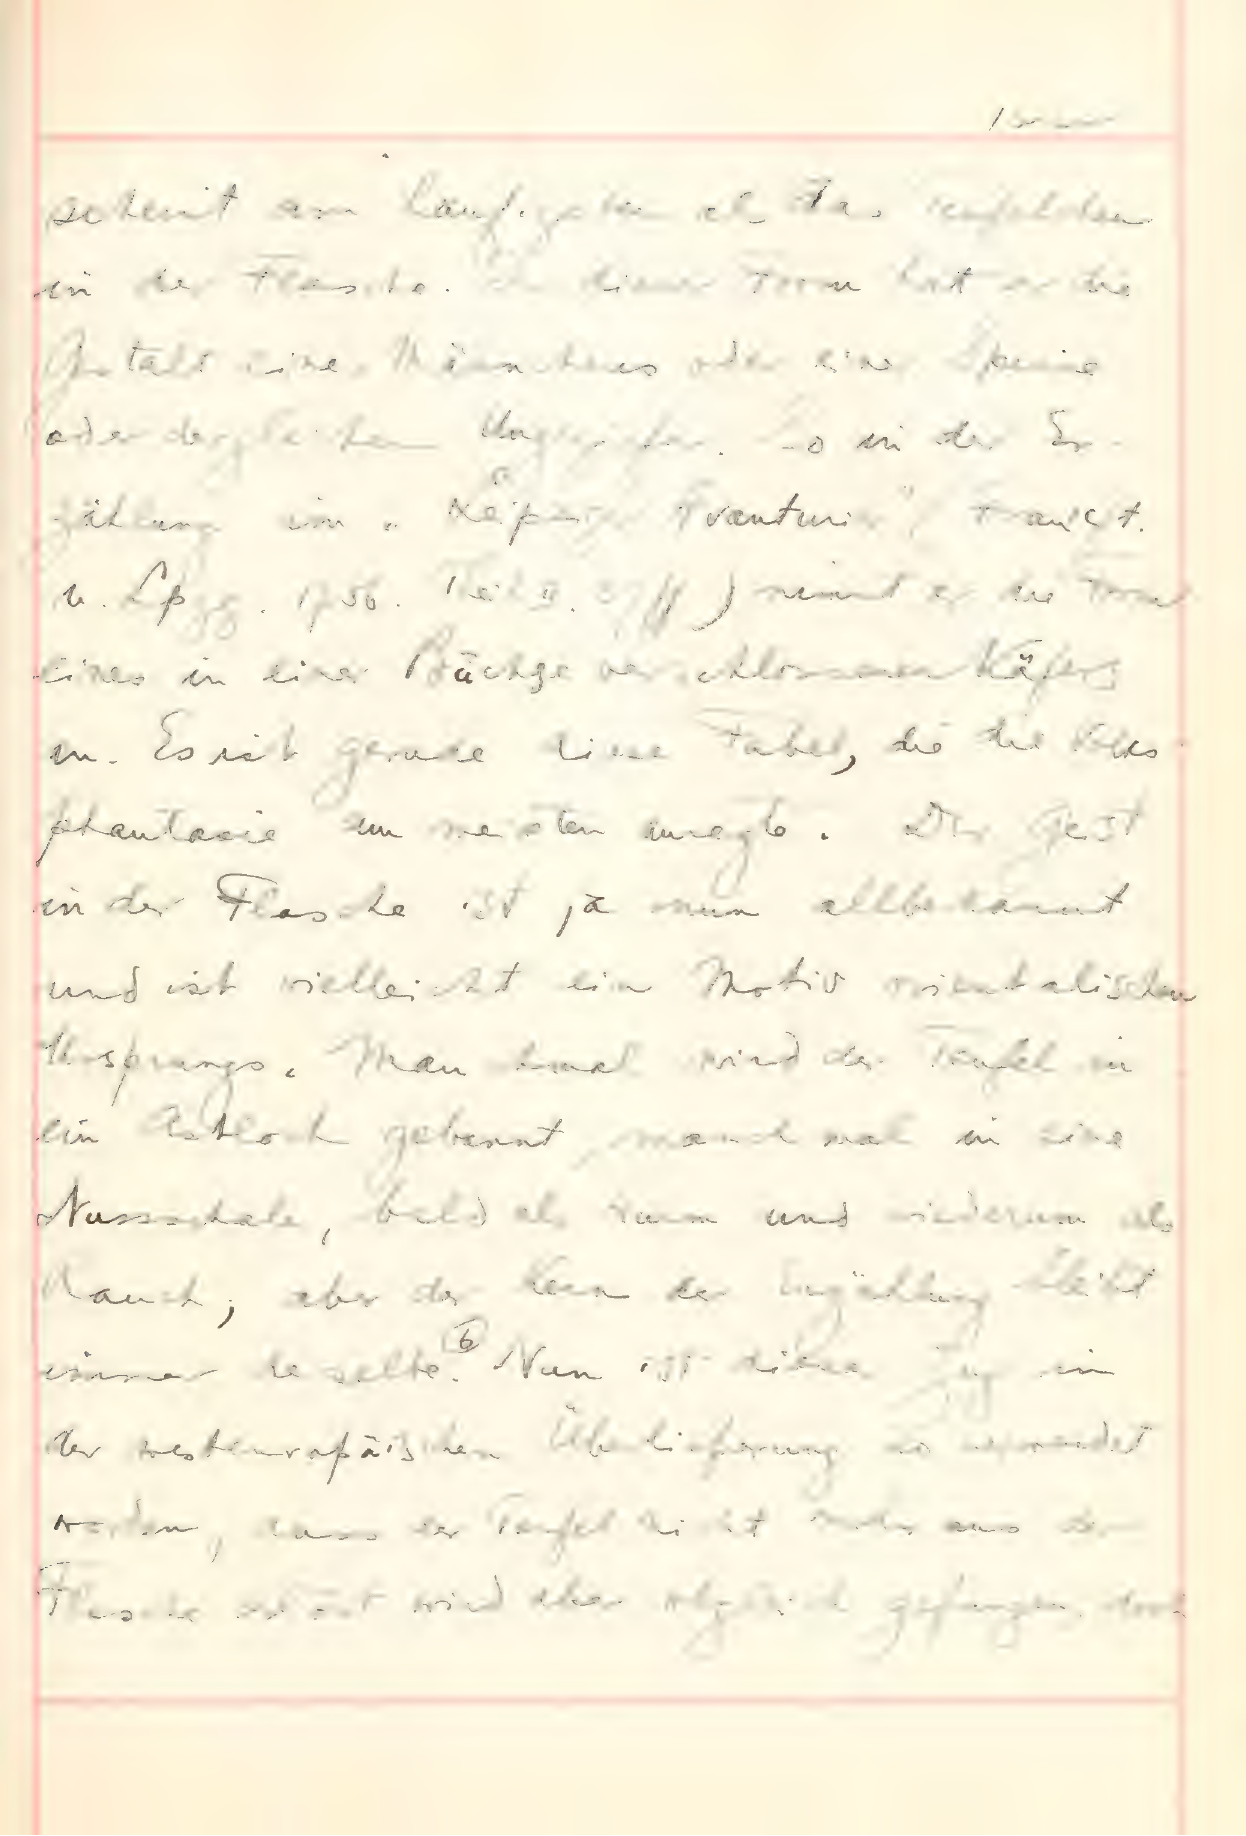 scheint am häufigsten als das Teufelchen
in der Flasche. In dieser Form hat er die
Gestalt eines Männchens oder einer Spinne
oder dergleichen Ungeziefer. So in der Er-
zählung im „ Avanturier" Frankft.
u. Lpzg. 1756. Teil II. ff) nimmt er die Form
eines in einer Büchse verschlossenen Käfers
an. Es ist gerade diese Fabel, die die Volks-
phantasie am meisten anregte. Der Geist
in der Flasche ist ja nun allbekannt
und ist vielleicht ein Motiv orientalischen
Ursprungs. Manchmal wird der Teufel in
ein Astloch gebannt, manchmal in eine
Nussschale, bald als Wurm und wiederum als
Rauch; aber der Kern der Erzählung bleibt
immer derselbe.⁶ Nun ist dieser Zug in
der westeuropäischen Überlieferung so verwendet
worden, dass der Teufel nicht mehr aus der
Flasche erlöst wird aber obgleich gefangen, doch